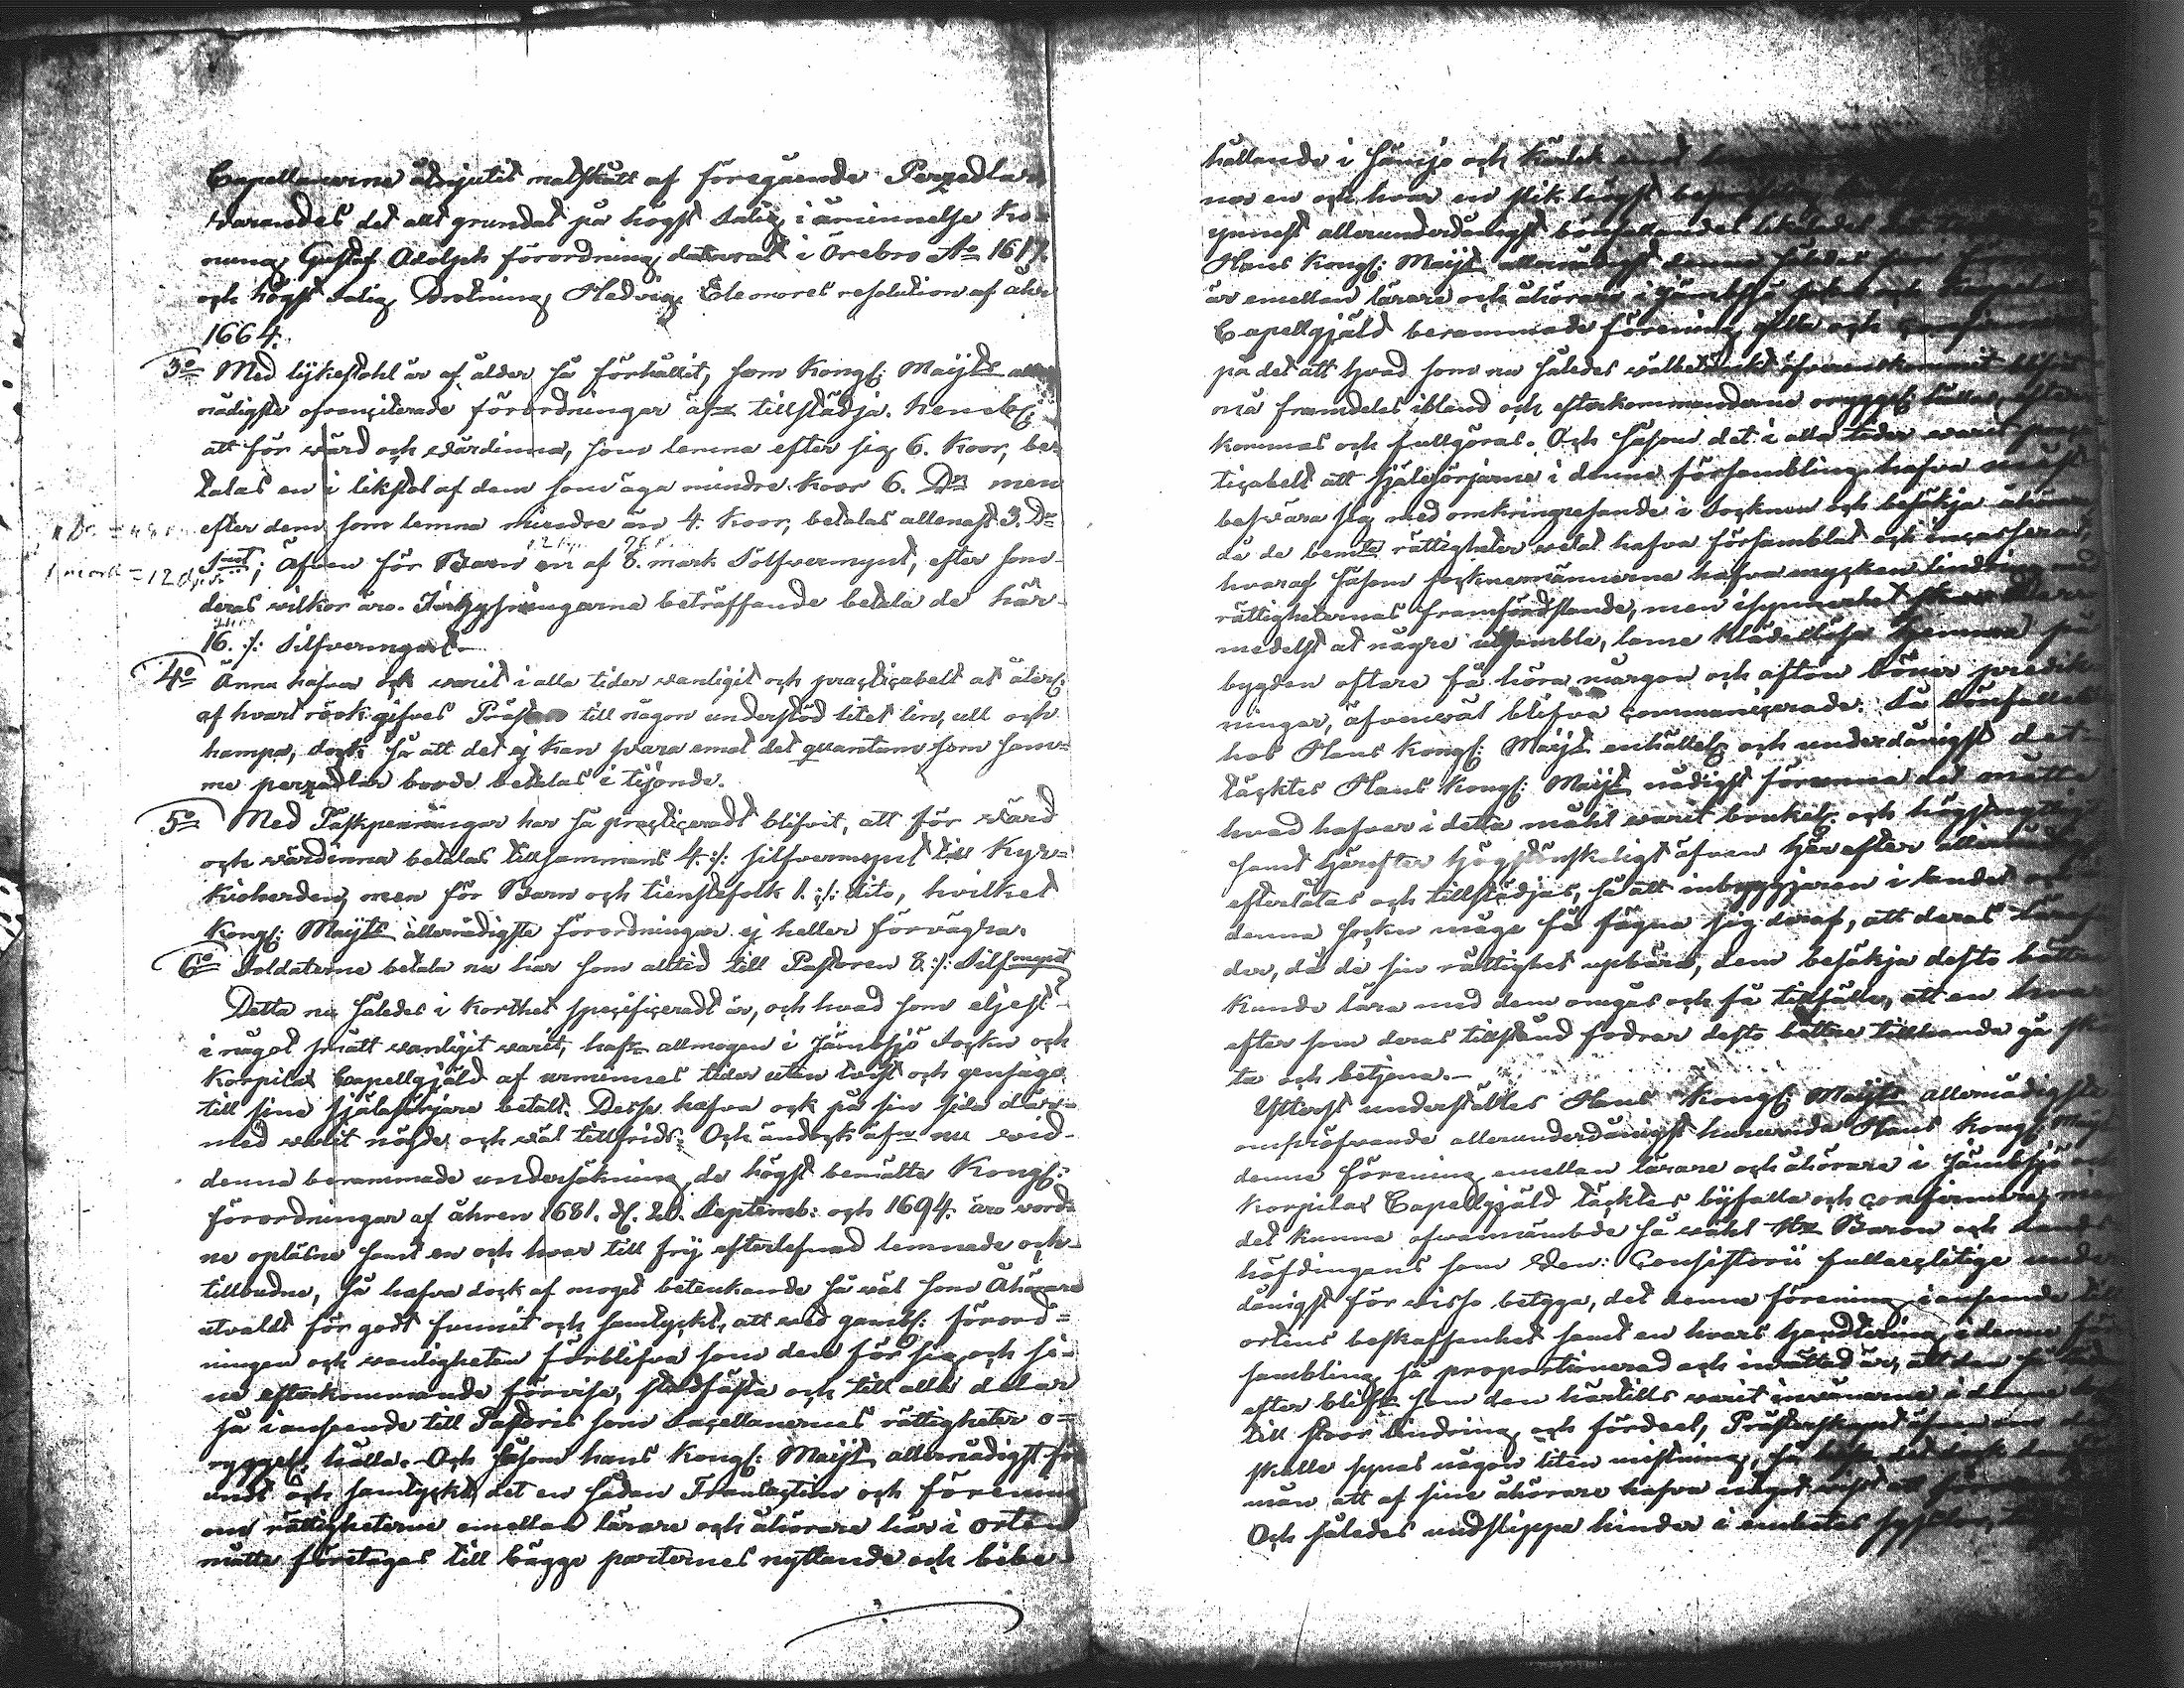 Capellanerne åtnjutit matskått af föregående Perzedlar
warandes det alt grundat på högst Salig i åminnelse Ko-
nung Gustaf Adolph förordning daterat i Örebro Ao 1617.
och högst salig Drotning Hedvig Eleonores resolution af åhr
1664.
3o Med lijkstohl är af ålder så förhållit, som Kongl: Maijts aller
nådigste förordningar äfn tillstädja. Kenebl:
att för wärd och wärdinna, som lemna efter sig 6. Koor, be-
talas en i likstol af dem som äga mindre Koor 6. Dr men
efter dem som lemna mindre än 4. Koor, betalas allenast 3. Dr
Smt; äfven för Barn en af 8. mark Solfvermynt, efter som
1 mark = 12
deras vilkor äro. Inhysingarna beträffande betala de här
16. :/: Silfvermynt
4o Ännu hafva ock warit i alla tider wanligit och practicabelt at
af hvart röök gifves Präst till någon understöd litet lin, ull och
hampa, dock så att det ej kan svara emot det quantum som sam-
me perzedlar borde betalas i tijonde.
5o Med Påskpenningar har så practiceradt blifvit, att för wärd
och wärdinna betalas tillsammans 4. :/: silfvermynt till Kyr-
kioherden, men för Barn och tienstefolk 1. :/: dito, hvilket
Kongl: Maijts allernådigste förordningar ej heller förvägra.
6o Soldaterne betala nu här som alltid till Pastoren 8. :/: Silfmynt
Detta nu således i korthet specificeradt är, och hvad som eljest
i något smått wanligit warit, hafn allmogen i Jämbsjö Sockn och
Korpilax Capellgjäld af urminnes tider utan twist och gensäge
till sine själasörjare betalt. Desse hafva ock på sin sida där-
med warit nögde och wäl tillfrids: Och ändock äfn nu wid
denna berammade undersökning de högst bemälte Kongl:
förordningar af åhren 1681. d. 20. Septemb: och 1694. äro vord-
ne opläsne samt en och hvar till frij efterlefnad lemnade och
tillbudne, så hafva dock af moget betenkande så wäl som Åhörare
utvaldt för godt funnit och samtyckt, att wid gambl: förord-
ningen och wanligheten förblifva som den för sig och si-
ne efterkommande förvisa, stadfästa och till alla delar
så i anseende till Pastoris som Sacellanernes rättigheter o-
ryggel. hålla. Och såsom hans Kongl: Maijt allernådigst för
undt och samtyckt, det en sådan Transaction och förening
om rättigheterne emellan lärare och åhörare här i orten
måtte företagas till bägge parternes nyttande och bibe-
hållande i sämjo och Kärlek emot
nar en och hvar en slik högst
ynnest allerunderdånigst bönfallandes likaledes
Hans Kongl: Maijt allernådigst denna således
är emellan lärare och åhörare i Jämbsjö sockn och Korpilax
Capellgjäld berammade förening gilla och confirmera
på det att hvad som nu således wälbetänckt öfverenskommit blifvit
må framdeles ibland och efterkommanderne oryggl: hållas, efter
kommas och fullgöras. Och såsom det i alla tider warit prac-
ticabelt att själesörjarne i denne församblling hafva måst
besvära sig med omkringresande i Socknen och besökja åhörare
då de bemte rättigheter welat hafva församblat och incasserat,
hvaraf såsom socknemännerne hafva mycken lindring med
rättigheternas framfördslande, men isynnerhet
medelst at några utgamble, lame klädeslösa hemma på
bygden oftare få höra morgon och afton böner predik-
ningar, äfvenwäl blifva communicerade. Så bönfalles
hos Hans Kongl: Maijt enhällel. och underdånigst det
täcktes Hans Kongl: Maijt nådigst förunna det måtte
hvad hafver i detta måhl warit brukel. och högstnyttigt
samt härefter högstönskeligt äfven här efter allernådigst
efterlåtas och tillstädjas, så att inbyggjaren i landet och
denna sockn måge få fägna sig deraf, att deras Läraf-
der, då de sin rättighet upbära, dem besökja desto bättre
kunde lära med dem omgås och få tillfälle, att en hvar
efter som deras tillstånd fodrar desto bättre tillhanda gå skö-
ta och betjena.—
Ytterst understältes Hans Kongl: Maijts allernådigste
ompröfvande allerunderdånigst huruvida Hans Kongl: Maijt
denne förening emellan lärare och åhörare i Jämbsjö och
Korpilax Capellgjäld täcktes bijfalla och confirmera, men
det kunna ofvannämbde så wähl Hr Baron och Lands-
höfdingens som Ven: Consistorii fullmecktige under-
dånigst för wisso betyga, det denna förening i anseende till
ortens beskaffenhet samt en hvars handtering i denne för-
sambling så proportionerad och inrättad är, att den så här
efter blifr som den härtills warit invånarne i denne
till stoor lindring och fördeel, Prästerskapet
skulle synas någon liten mistning, så
män att af sine åhörare hafva något
Och således undslippa hinder i embetes sysslor,